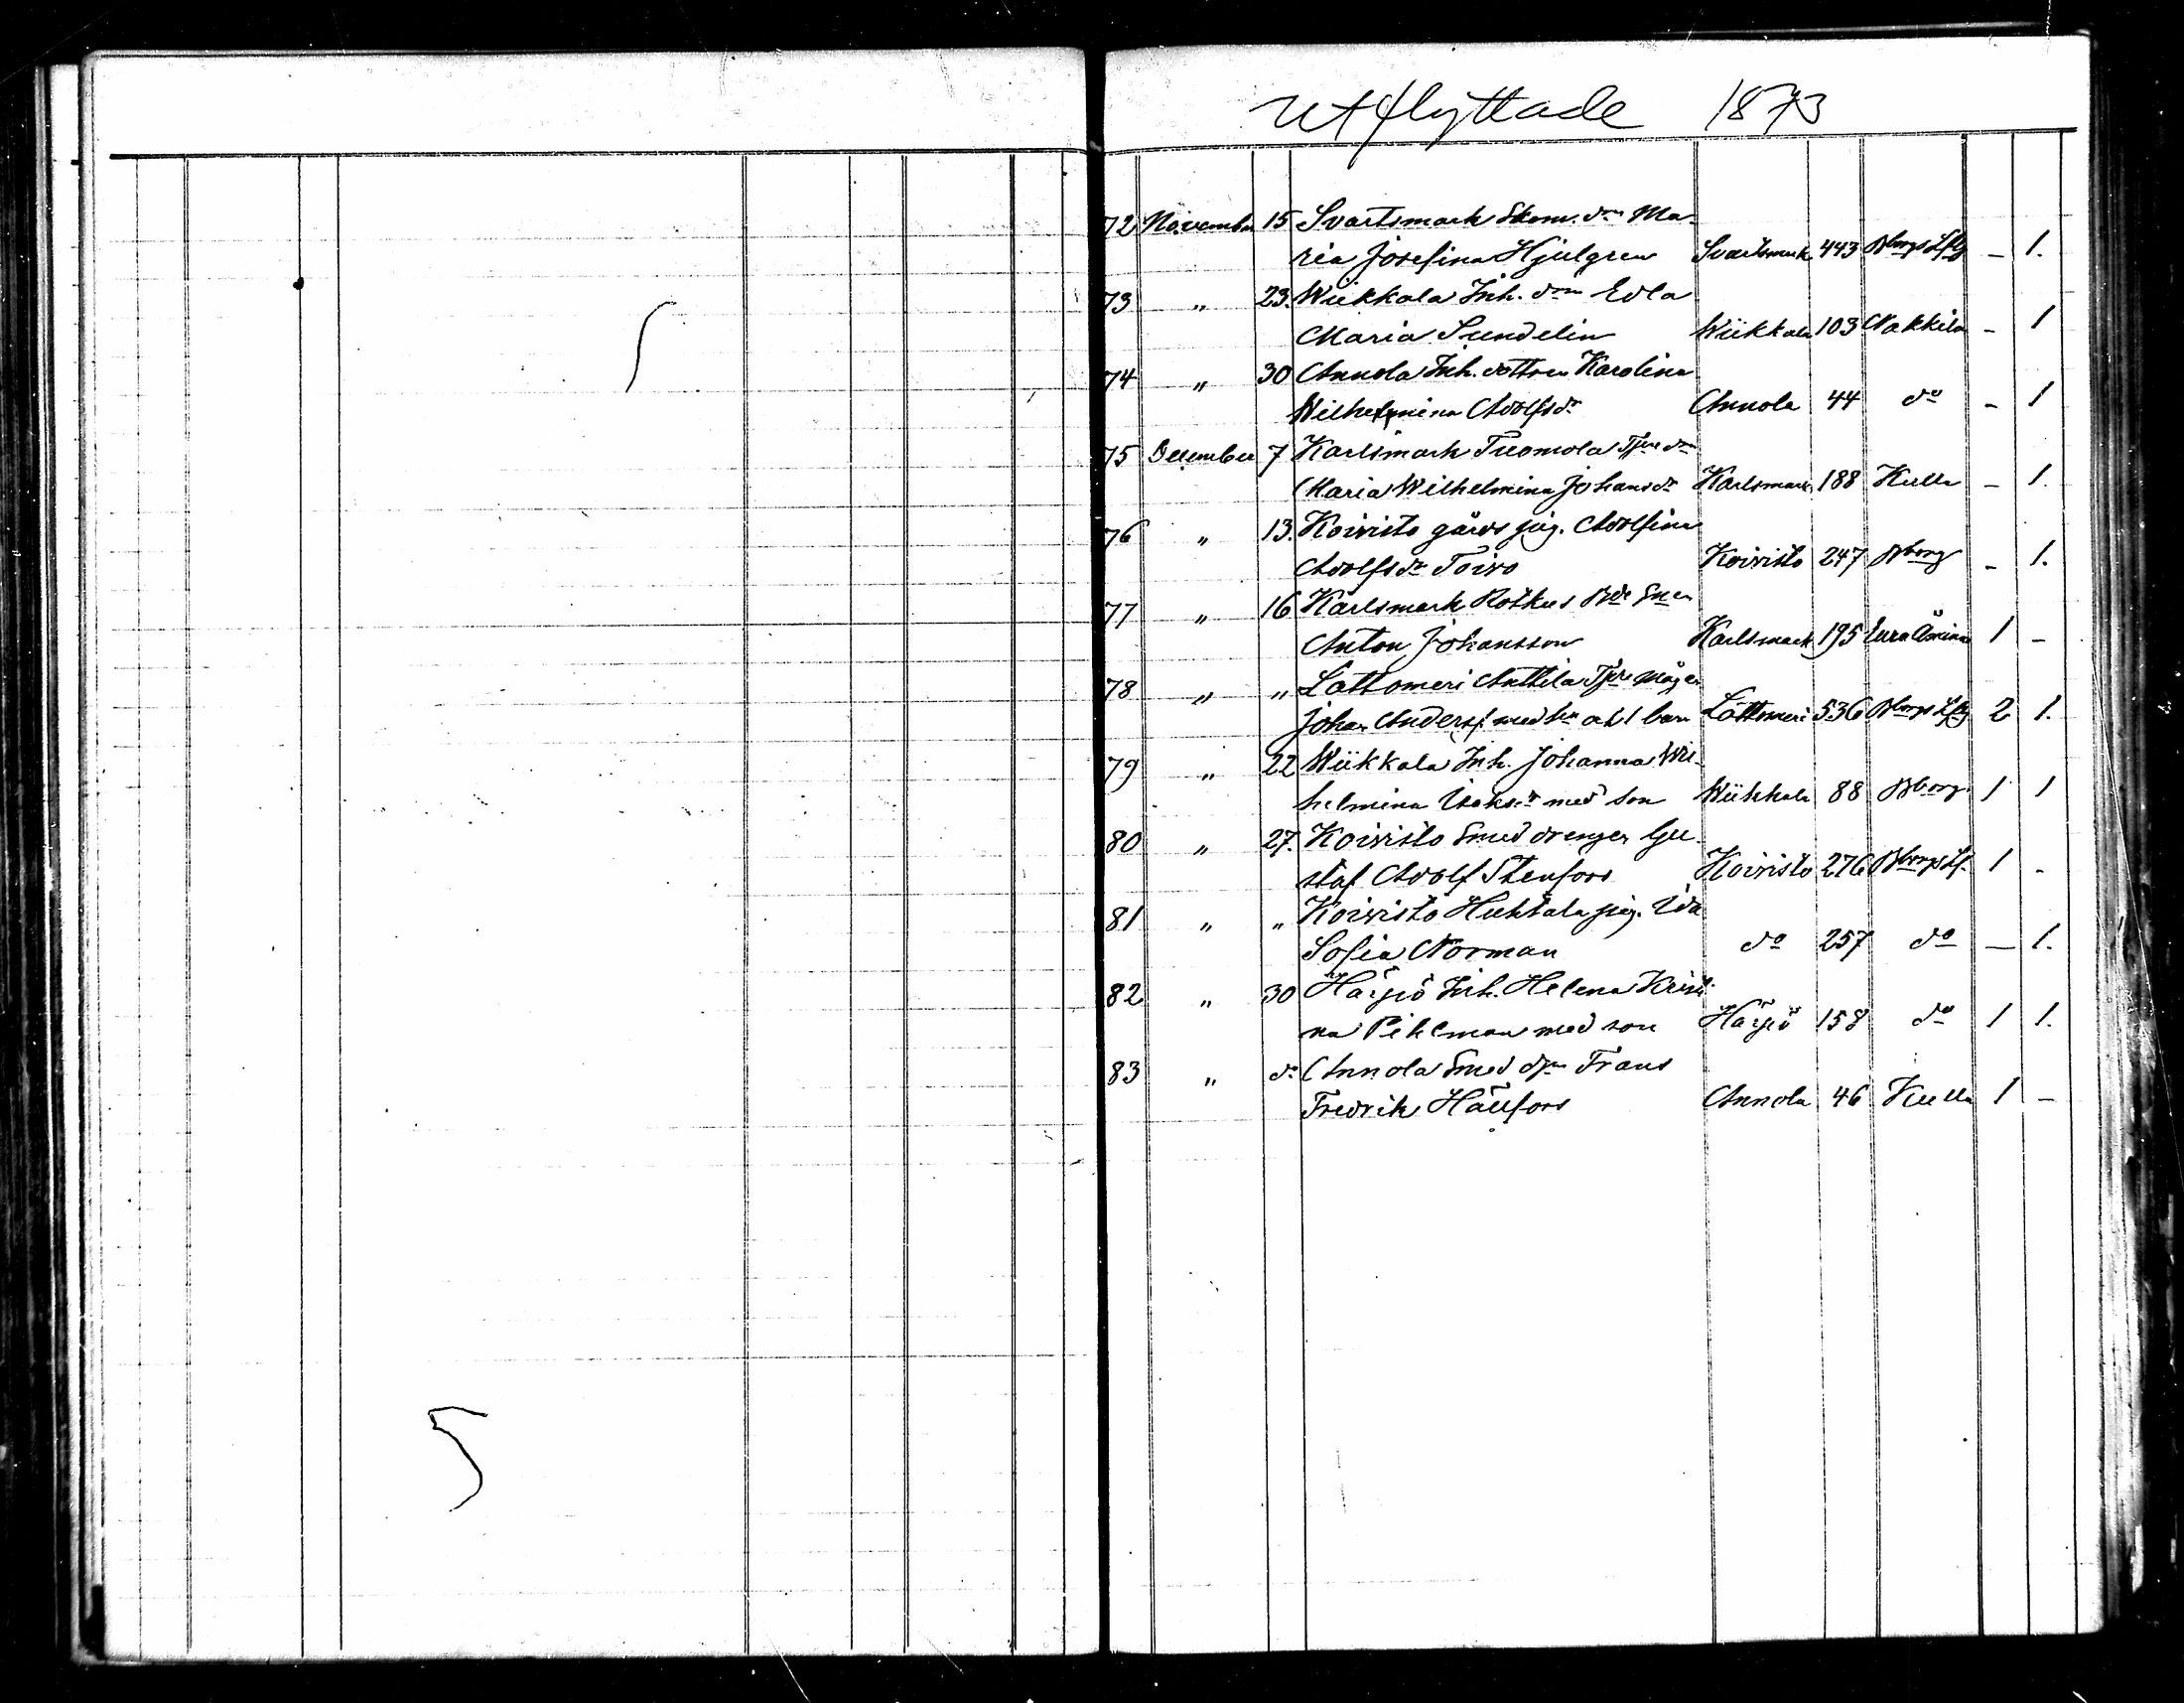 Utflyttade 1873
72 November 15 Svartsmark Skom. drn Ma-
ria Josefina Hjulgren Svartsmark 443 Bborgs Lfg - 1.
73 " 23. Wiikkala Inh. drn Edla
Maria Sundelin Wiikkala 103 Nakkila - 1
74 " 30 Annola Inh. dottren Karolina
Wilhelmina Adolfsdr Annola 44 do - 1
75 December 7 Karlsmark Tuomola drn
Maria Wilhelmina Johansdr Karlsmark 188 Kulla - 1.
76 " 13. Koivisto gårds pig. Adolfina
Adolfsdr Toivo Koivisto 247 Bborg - 1.
77 " 16 Karlsmark Rotkus Bde Snen
Anton Johansson Karlsmark 195 Eura Åminne 1 -
78 " " Lattomeri Anttila Tjre mågen
Johan Andersf. med hu o. 1 barn Lattomeri 536 Bborgs Lfg 2 1.
79 " 22 Wiikkala Inh. Johanna Wil-
helmina Isaksdr med son Wiikkala 88 Bborg 1 1
80 " 27. Koivisto Smed drengen Gu-
staf Adolf Stenfors Koivisto 276 Bborgs Lf. 1 -
81 " " Koivisto Huhtala pig. Ida
Sofia Norman do 257 do - 1.
82 " 30 Härpö Inh. Helena Kristi-
na Pihlman med son Härpö 158 do 1 1.
83 " do Annola Smed Frans
Fredrik Hällfors Annola 46 Kulla 1 -
5